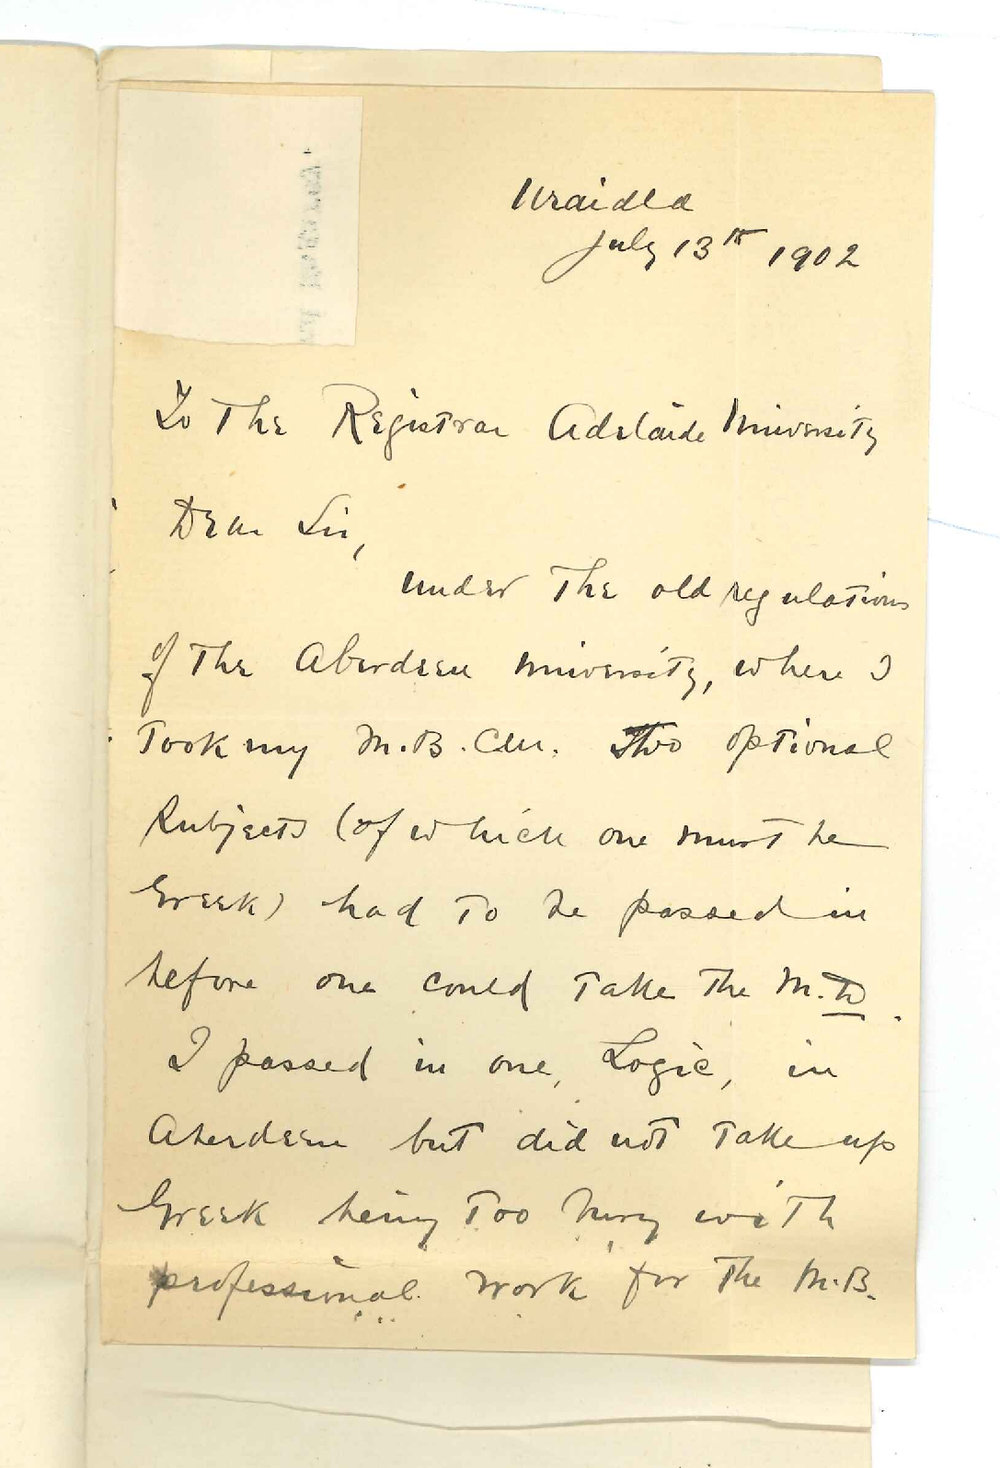 Uraidla
July 13th 1902
To The Registrar Adelaide University
Dear Sir,
under The old regulations
of The Aberdeen University, where I
Took my M.B. C.M. Two optional
Subjects (of which one must be
Greek) had To be passed in
before one could Take The M.D.
I passed in one, Logic, in
Aberdeen but did not Take up
Greek being Too busy with
professional work for The M.B.